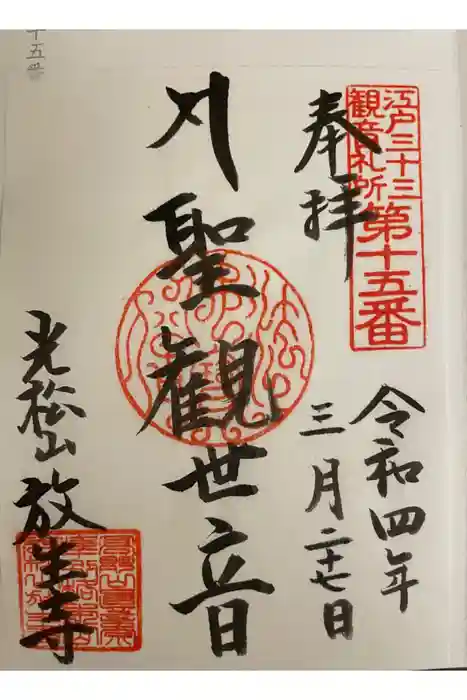 江戸三十三
観音札所第十五番
奉拝
令和四年
三月二十七日
聖観世音
光松山放生寺
十五番